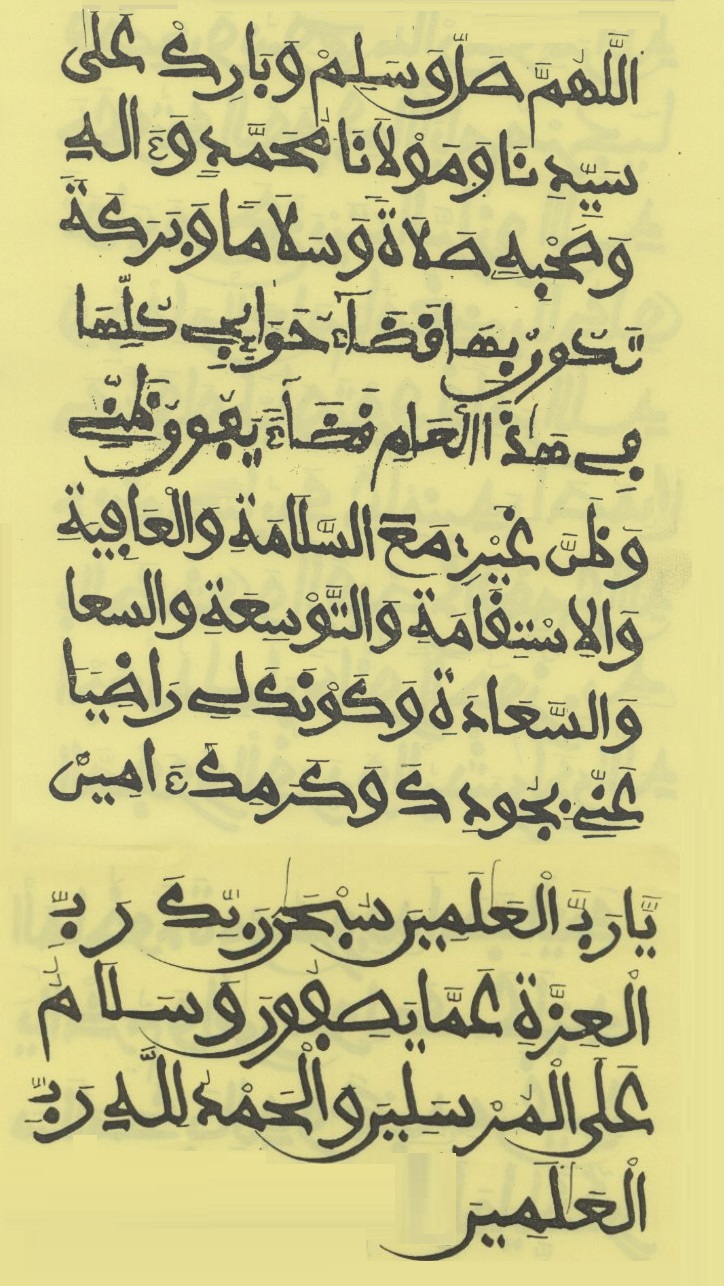 اللَّهُمَّ صَلِّ وَسَلِّمْ وَبَارِكْ عَلَى
سَيِّدِنَا وَمَوْلَانَا مُحَمَّدٍ وَءَالِهِ
وَصَحْبِهِ صَلَاةً وَسَلَامًا وَبَرَكَةً
تَكُونُ بِهَا قَضَاءُ حَوَايِجِي كُلِّهَا
فِي هَذَا الْعَامِ قَضَاءً يَفُوقُ ظَنِّي
وَظَنَّ غَيْرِي مَعَ السَّلَامَةِ وَالْعَافِيَةِ
وَالِاسْتِقَامَةِ وَالتَّوْسِعَةِ والسعا
وَالسَّعَادَةِ وَكَوْنِكَ لِي رَاضِيًا
عَنِّي بِجُودِكَ وَكَرَمِكَ ءَامِينْ
يَا رَبَّ الْعَلَمِينَ سُبْحَنَ رَبِّكَ رَبِّ
الْعِزَّةِ عَمَّا يَصِفُونَ وَسَلَامٌ
عَلَى الْمُرْسَلِينَ وَالْحَمْدُ لِلَّهِ رَبِّ
الْعَلَمِينَ